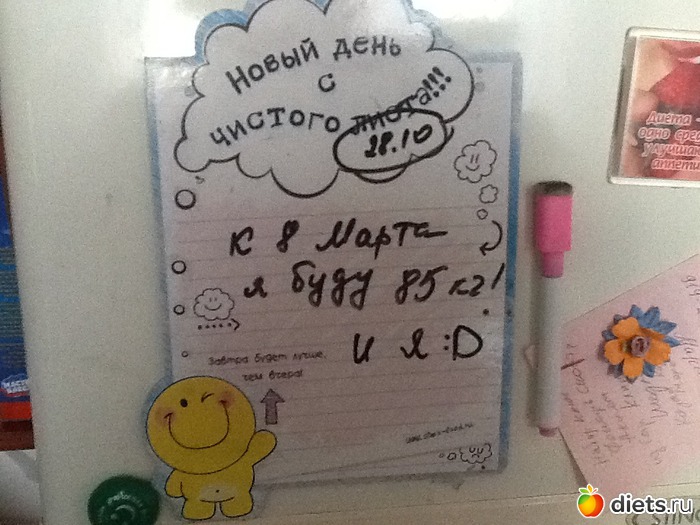 Новый день
с
чистого листа!!!
28.10
К 8 Марта
я буду 85 кг!
И Я :D
Завтра будет лучше,
чем вчера!
Диета -
одно сре
улучшан
аппети
diets.ru